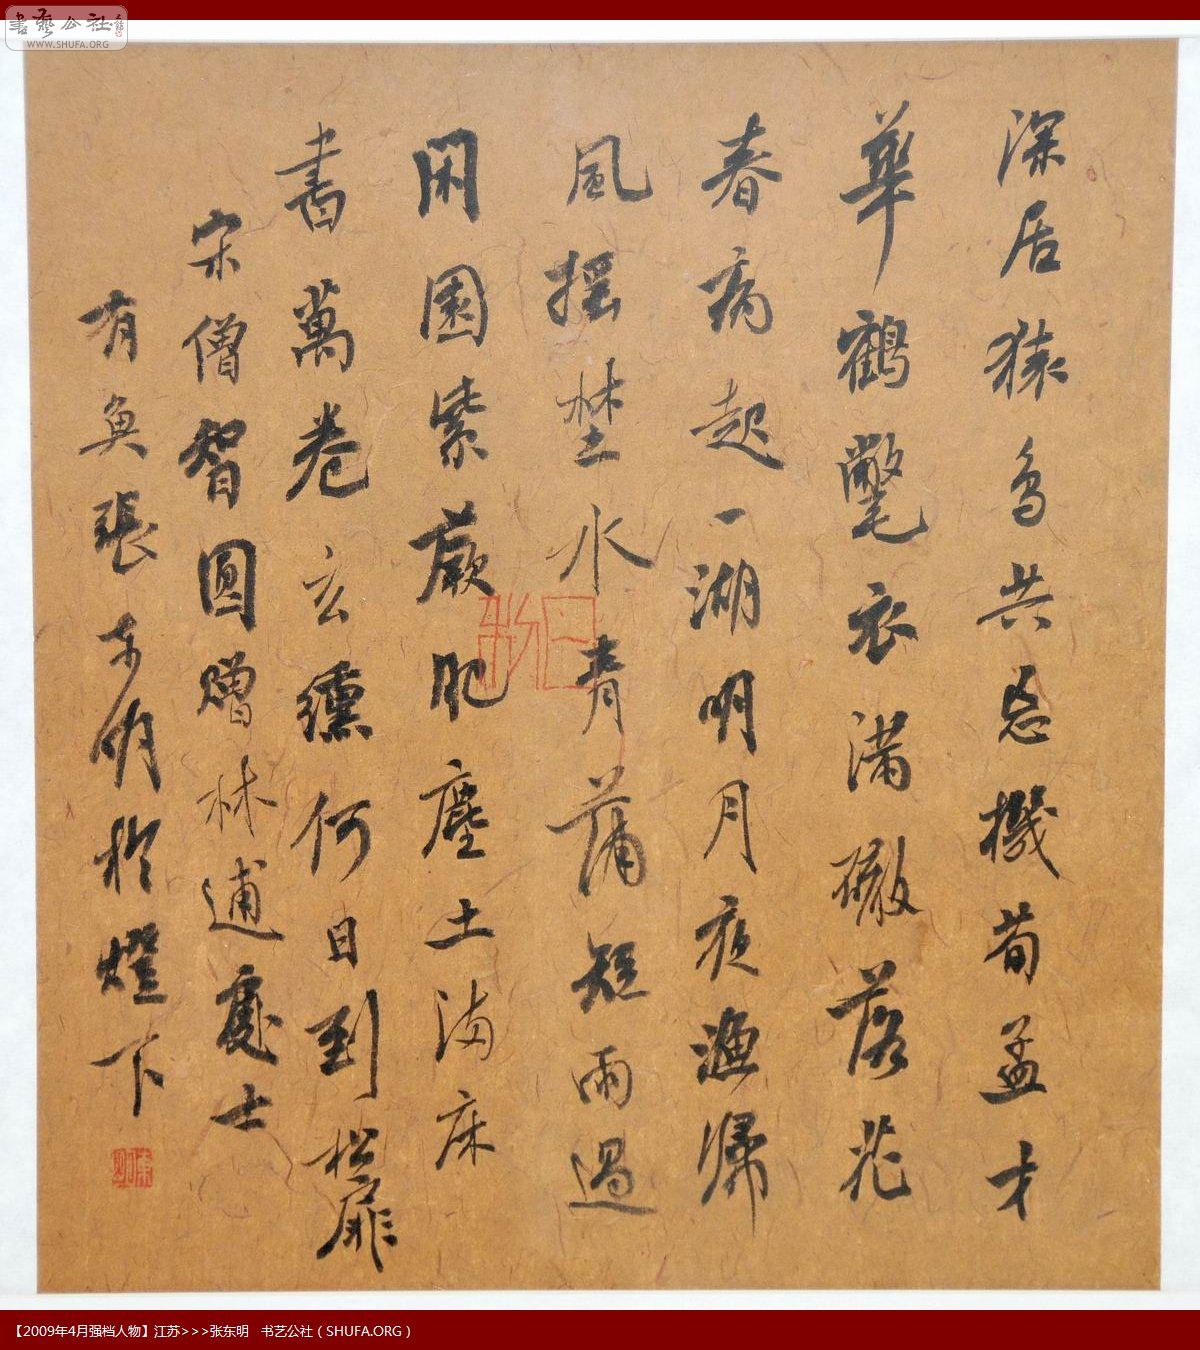 書藝公社
WWW.SHUFA.ORG
深居猿鳥共忘機荀孟才
華鶴氅衣滿砌落花
春病起一湖明月夜漁歸
風搖埜水青蒲短雨過
閑園紫蕨肥塵土滿床
書萬卷玄纁何日到松扉
宋僧智圓贈林逋處士
有魚張東明於燈下
【2009年4月强档人物】江苏>>>张东明 书艺公社（SHUFA.ORG）